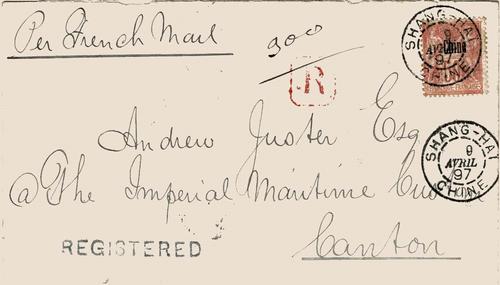 Per French Mail
300
R
Chine
SHANG-HAI
9
AVRIL
97
CHINE
Andrew Juster Esq
SHANG-HAI
9
AVRIL
97
CHINE
@ The Imperial Maritime Cus
REGISTERED
Canton